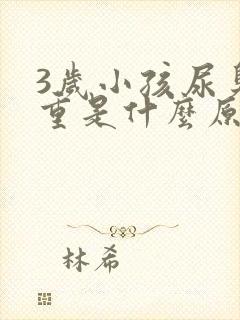 3歲小孩尿
重是什麼原
林希